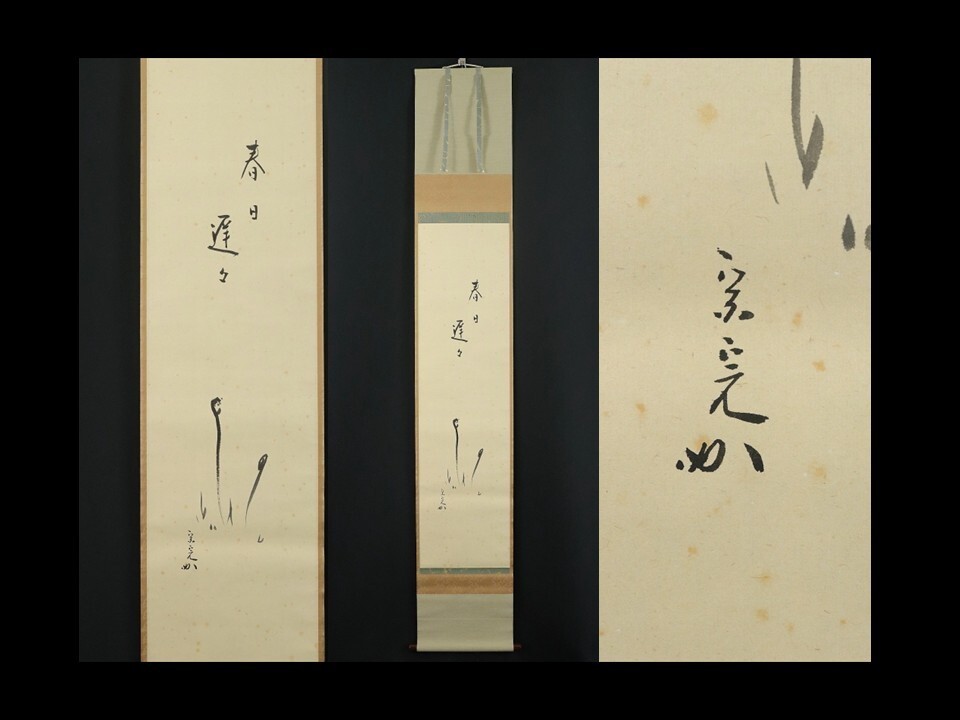 春日
遅々
宗完
春日
遅々
宗完
宗完